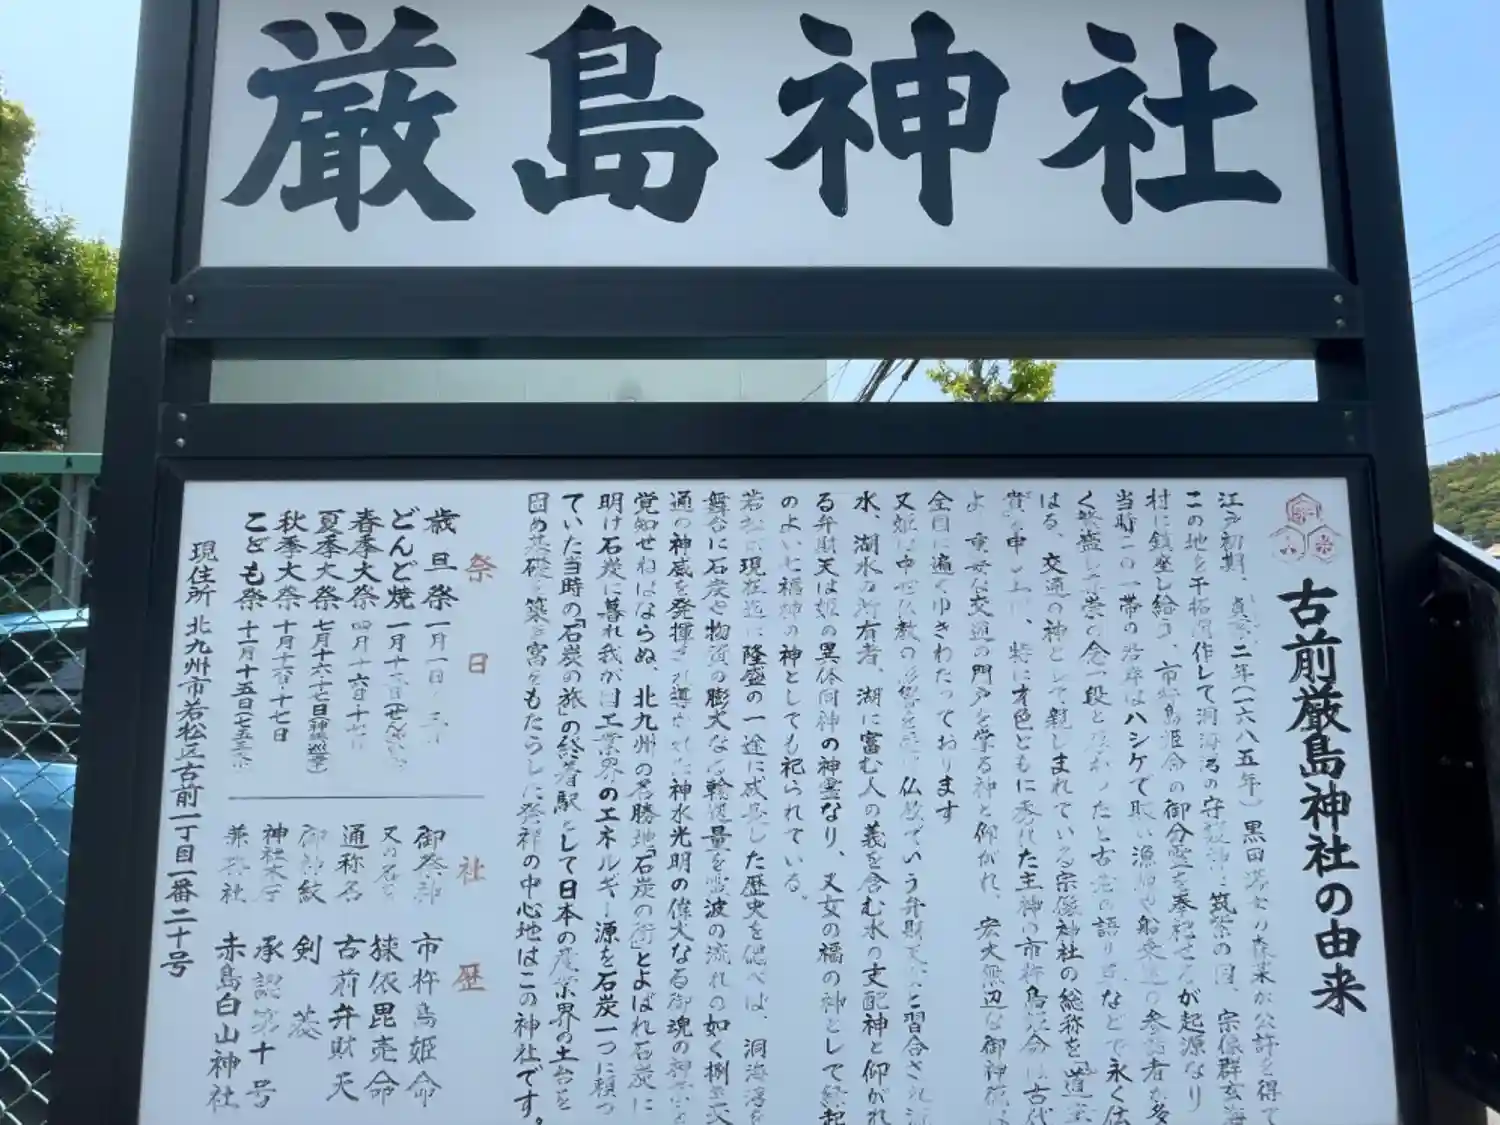 厳島神社
古前厳島神社の由来
江戸初期、貞享二年(一六八五年)黒田
この地を干拓 作して洞海湾の守 筑紫の国、宗像群玄海
村に鎮座し給う、市杵島姫命の御分霊を が起源なり
当時この一帯の海岸はハシケで 漁師や船 の参 者が多
く 崇の念一段と たと古老の語り などで永く伝
はる、交通の神として親しまれている宗像神社の総称を「道主
貴」と申し上げ、特に才色ともに秀れた主神の市杵島姫命は古代
より 交通の門戸を掌る神と仰がれ、宏大無辺な御神徳は
全国に遍くゆきわたっております
又姫は中 仏教の影響を 仏教でいう弁財天 と習合され
水、湖水の所有者、湖に富む人の義を含む水の支配神と仰がれ
る弁財天は姫の異体同神の神霊なり、又女の福の神として縁起
のよい七福神の神としても祀られている。
若松 現在迄に隆盛の一途に した歴史を偲べば、洞海湾を
舞台に石炭や物資の膨大なる輸送量を 波の流れの如く捌
通の神威を発揮され導かれた神水光明の偉大なる御魂の神 を
覚知せねばならぬ、北九州の名勝地「石炭の街」とよばれ石炭に
明け石炭に暮れ我が国工業界のエネルギー源を石炭一つに頼っ
ていた当時の「石炭の旅」の終着駅として日本の産業界の土台を
固め基礎を築き富をもたらした発祥の中心地はこの神社です。
祭日
歳旦祭 一月一日
どんど焼 一月十
春季大祭 四月十六日十七
夏季大祭 七月十六十七日(神輿巡幸)
秋季大祭 十月十六日十七日
こども祭 十一月十五日(七五三
社歴
御祭神 市杵島姫命
又の名 狭依毘売命
通称名 古前弁財天
御神紋 剣菱
神社本庁 承認第十号
兼務社 赤島白山神社
現住所 北九州市若松区古前一丁目一番二十号